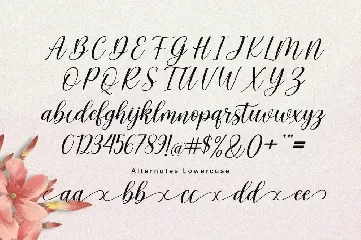 A B C D E F G H I J K L M N
O P Q R S T U V W X Y Z
abcdefghijklmnopqrstuvwxyz
0123456789!@#$%&()+"'=
Alternates Lowercase
aa bb cc dd ee